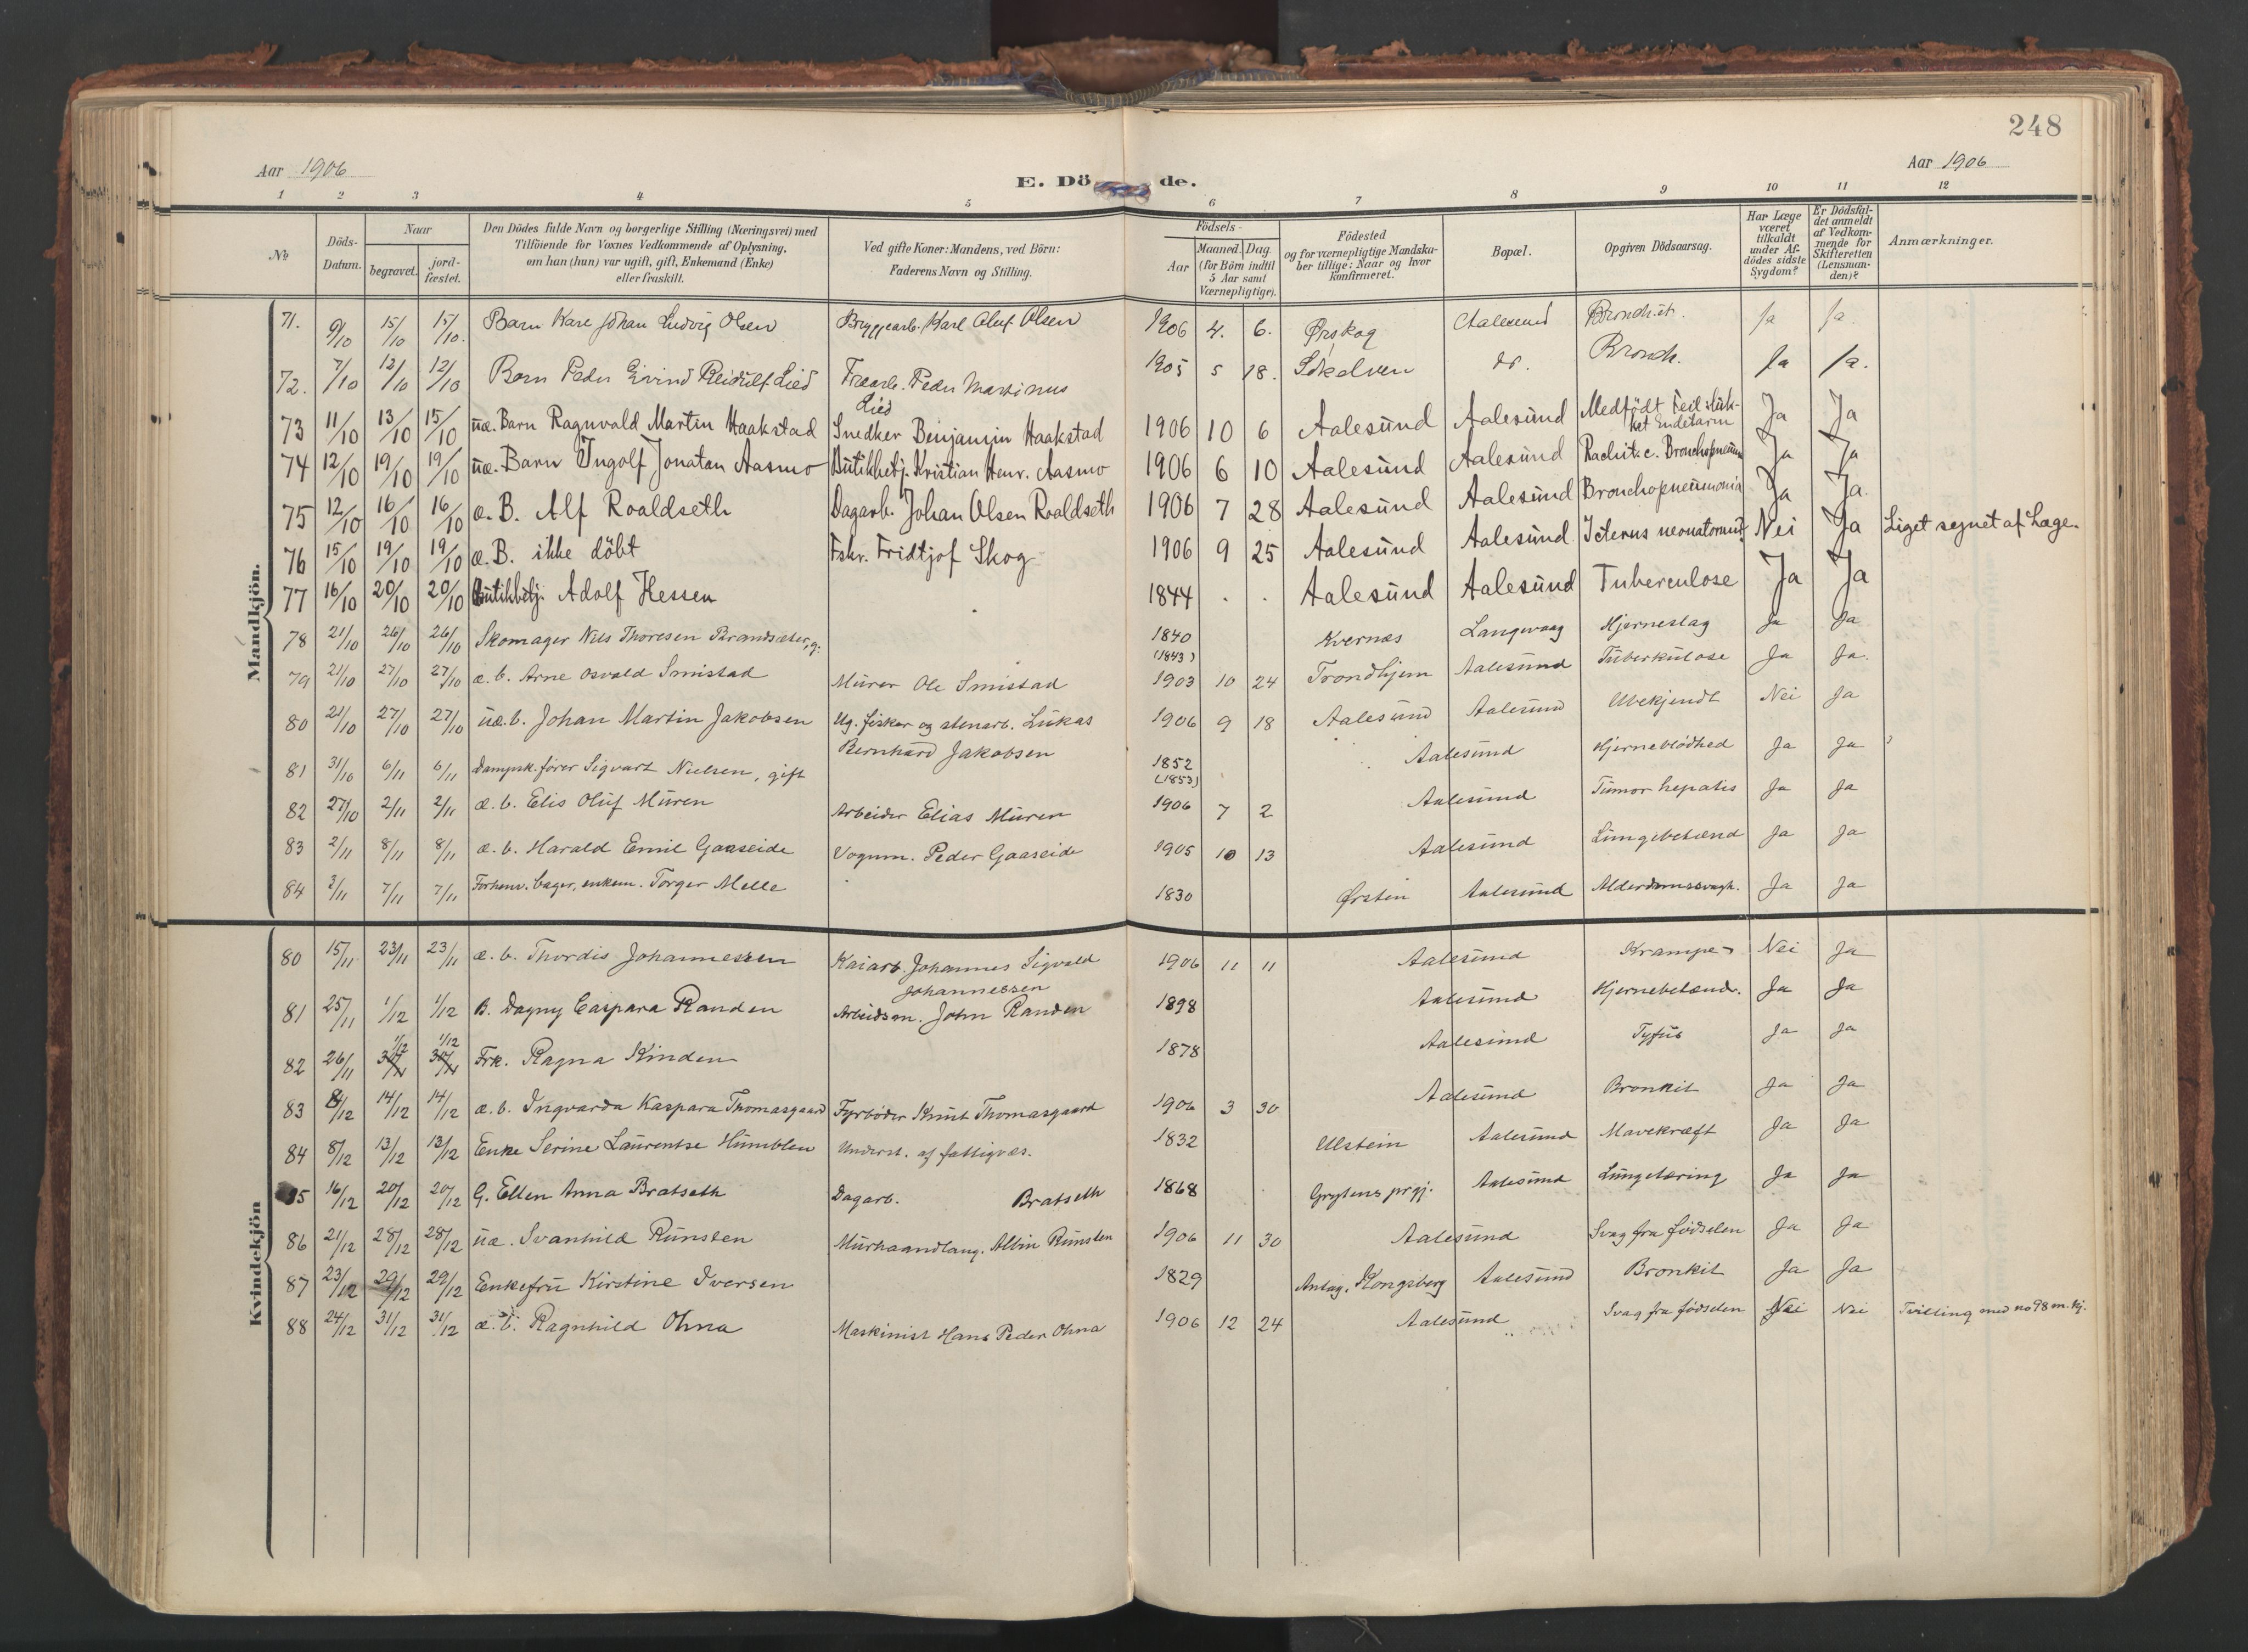 248
Aar 1906
Aar 1906
E. Dö de.
1 2 3 4 5 6 7 8 9 10 11 12
No
Döds-Datum.
Naar
begravet.
jord-fæstet.
Den Dödes fulde Navn og borgerlige Stilling (Næringsvei) med
Tilföiende for Voxnes Vedkommende af Oplysning,
om han (hun) var ugift, gift, Enkemand (Enke)
eller fraskilt.
Ved gifte Koner: Mandens, ved Börn:
Faderens Navn og Stilling.
Födsels-
Aar
Maaned. Dag.
(for Börn indtil
5 Aar samt
Værnepligtige).
Födested
og for værnepligtige Mandska-
ber tillige: Naar og hvor
konfirmeret.
Bopæl.
Opgiven Dödsaarsag.
Har Læge
været
tilkaldt
under Af-
dödes sidste
Sygdom?
Er Dödsfal-
det anmeldt
af Vedkom-
mende for
Skifteretten
(Lensman-
den)?
Anmærkninger.
Mandkjön.
71. 9/10 15/10 15/10. Barn Kare Johan Ludvig Olsen Bryggearb. Karl Oluf Olsen 1906 4. 6. Ørskog Aalesund Bronchit. Ja Ja.
72. 7/10 12/10 12/10 Barn Peder Eivind Reidulf Lied Peder Martinus 1905 5 18. Sökelven do. Bronch. Ja Ja.
Lied
73 11/10 13/10 15/10 uæ. Barn Ragnvald Martin Haakstad Snedker Benjamin Haakstad 1906 10 6 Aalesund Aalesund Medfödt Feil i luk-
ket Endetarm Ja Ja
74 12/10 19/10 19/10 uæ. Barn Ingolf Jonatan Aasmo Butikbetj. Kristian Henr. Aasmo 1906 6 10 Aalesund Aalesund Rachit. c. Bronchopneum Ja Ja
75 12/10 16/10 16/10 æ. B. Alf Roaldseth Dagarb. Johan Olsen Roaldseth 1906 7 28 Aalesund Aalesund Bronchopneumonia Ja Ja.
76 15/10 19/10 19/10 æ. B. ikke döbt Fskr. Fridtjof Skog 1906 9 25 Aalesund Aalesund Icterus neonatorum? Nei Ja Liget synet af Læge.
77 16/10 20/10 20/10 Butikbetj. Adolf Hessen 1844 . . Aalesund Aalesund Tuberculose Ja Ja
78 21/10 26/10 26/10 Skomager Nils Thoresen Brandsæter, g. 1840 Kvernæs Langevaag Hjerneslag Ja Ja
(1843)
79 21/10 27/10 27/10 æ. b. Arne Osvald Smistad Murer Ole Smistad 1903 10 24 Trondhjem Aalesund Tuberkulose Ja Ja.
80 21/10 27/10 27/10 uæ. b. Johan Martin Jakobsen Ug. fisker og stenarb. Lukas 1906 9 18 Aalesund Aalesund Ubekjendt Nei Ja
Bernhard Jakobsen
81 31/10 6/11 6/11 Dampsk.förer Sigvart Nielsen, gift 1852 Aalesund Hjerneblødhed Ja Ja
(1853)
82 27/10 2/11 2/11 æ. b. Elis Oluf Muren Arbeider Elias Muren 1906 7 2 Aalesund Tumor hepatis Ja Ja
83 2/11 8/11 8/11 æ. b. Harald Emil Gaaseide Vognm. Peder Gaaseide 1905 10 13 Aalesund Lungebetænd Ja Ja
84 3/11 7/11 7/11 Forhenv. bager, enkem. Torger Melle 1830 Ørsten Aalesund Alderdomssvagh. Ja Ja
Kvindekjön
80 15/11 23/11 23/11 æ. b. Thordis Johannessen Kaiarb. Johannes Sigvald 1906 11 11 Aalesund Krampe Nei Ja
Johannessen
81 25/11 1/12 1/12 B. Dagny Caspara Randen Arbeidsm. John Randen 1898 Aalesund Hjernebetænd. Ja Ja
1/12 1/12
82 26/11 30/11 30/11 Frk. Ragna Kinden 1878 Aalesund Tyfus Ja Ja
83 8/12 14/12 14/12 æ. b. Ingvarda Kaspara Thomasgaard Fyrbøder Knut Thomasgaard 1906 3 30 Aalesund Bronkit Ja Ja
84 8/12 13/12 13/12 Enke Serine Laurentse Humblen Underst. af fattigvæs. 1832 Ulstein Aalesund Mavekræft Ja Ja
85 16/12 20/12 20/12 G. Ellen Anna Bratseth Dagarb. Bratseth 1868 Grytens prgj. Aalesund Lungetæring Ja Ja
86 21/12 28/12 28/12 uæ. Svanhild Runsten Murhaandlang. Albin Runsten 1906 11 30 Aalesund Svag fra fødselen Ja Ja
87 23/12 29/12 29/12 Enkefru Kirstine Iversen 1829 Antag. Kongsberg Aalesund Bronkit Ja Ja
88 24/12 31/12 31/12 æ. b. Ragnhild Ohna Maskinist Hans Peder Ohna 1906 12 24 Aalesund Svag fra fødselen Nei Nei Tvilling med no 98 m. kj.